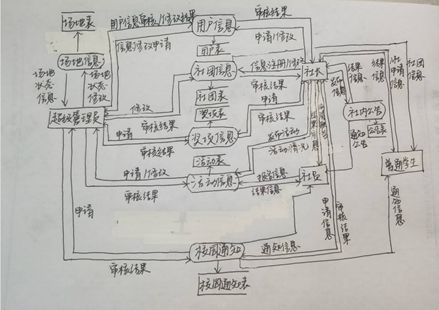 场地表
场地信息
场地状态信息
场地状态修改
超级管理员
用户信息审核/修改结果
信息修改申请
用户信息
用户表
审核结果
申请/修改
社团信息
社团表
修改
审核结果
信息注册/修改
审核结果
申请
社长
奖项信息
奖项表
申请
审核结果
发布活动
活动情况
活动表
活动信息
申请/修改
审核结果
报名信息
结果信息
社员
社内公告
公告表
发布信息
通知公告
结果信息
申请信息
社团信息
普通学生
通知信息
申请信息
审核结果
校园通知
通知信息
校园通知表
申请
审核结果